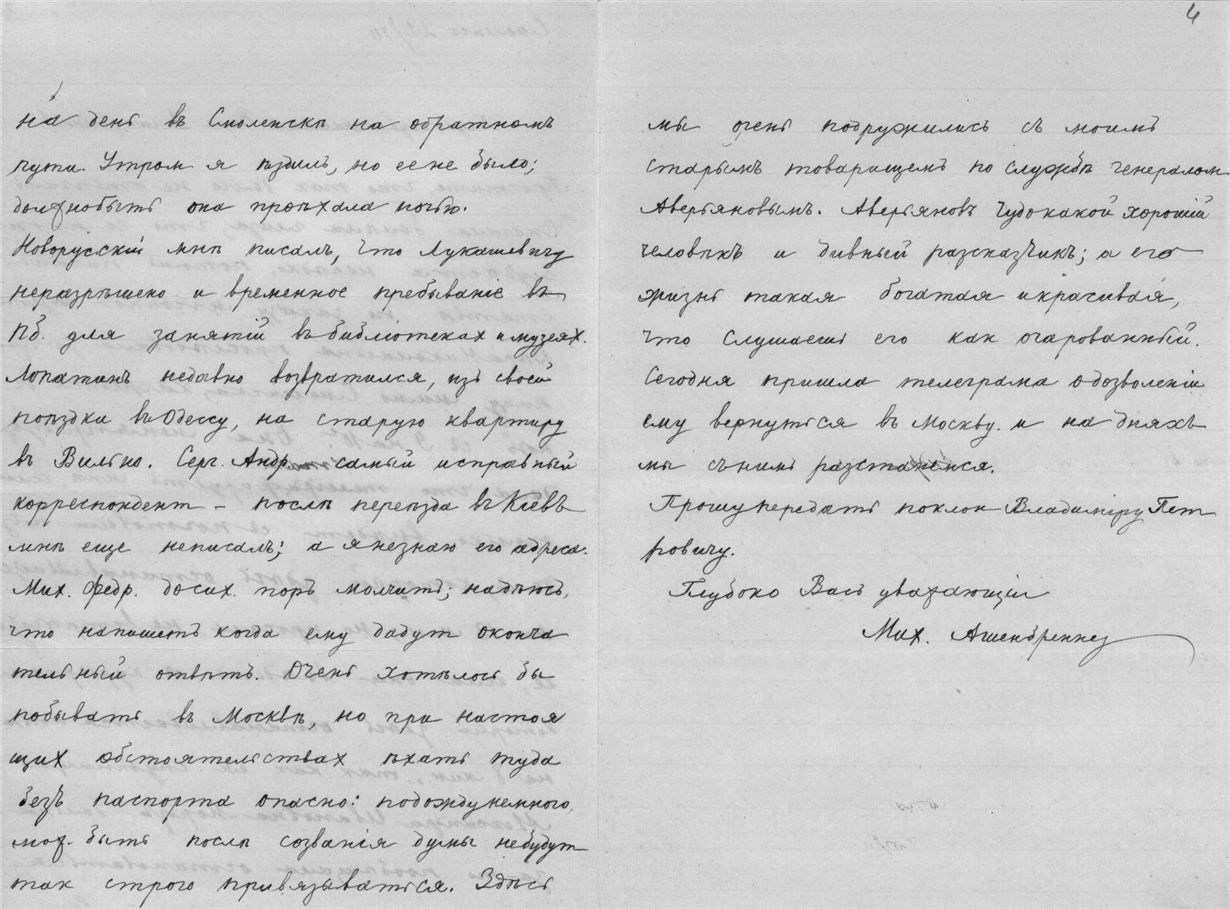 4
на день въ Смоленскѣ на обратномъ
пути. Утром я ѣздилъ, но ее не было;
должнобыть она проѣхала ночью.
Новорусскій мнѣ писалъ, что Лукашевичу
неразрѣшено и временное пребываніе въ
Пб. для занятій въ библіотеках и музеях.
Лопатинъ недавно возвратился, изъ своей
поѣздки въ Одессу, на старую квартиру
въ Вильно. Серг. Андр. самый исправный
корреспондент – послѣ переѣзда въ Кіевъ
мнѣ еще неписалъ; а я незнаю его адреса.
Мих. Федр. досих. поръ молчитъ; надѣюсь,
что напишетъ когда ему дадут оконча
тельный отвѣтъ. Очень хотѣлось бы
побывать въ Москвѣ, но при настоя
щих обстоятельствах ѣхать туда
безъ паспорта опасно: подождунемного,
мож. быть послѣ созванія думы небудут
так строго привязываться. Здѣсь
мы очень подружились съ моимъ
старымъ товарищемъ по службѣ генералом
Аверьяновымъ. Аверьяновъ чудокакой хорошій
человѣкъ и дивный разсказчикъ; а его
жизнь такая богатая и красивая,
что слушаешь его как очарованный.
Сегодня пришла телеграма о дозволеніи
ему вернуться въ Москву. и на дняхъ
мы съ нимъ разстанемся.
Прошу передать поклон Владиміру Пет
ровичу.
Глубоко Васъ уважающій
Мих. Ашенбреннер